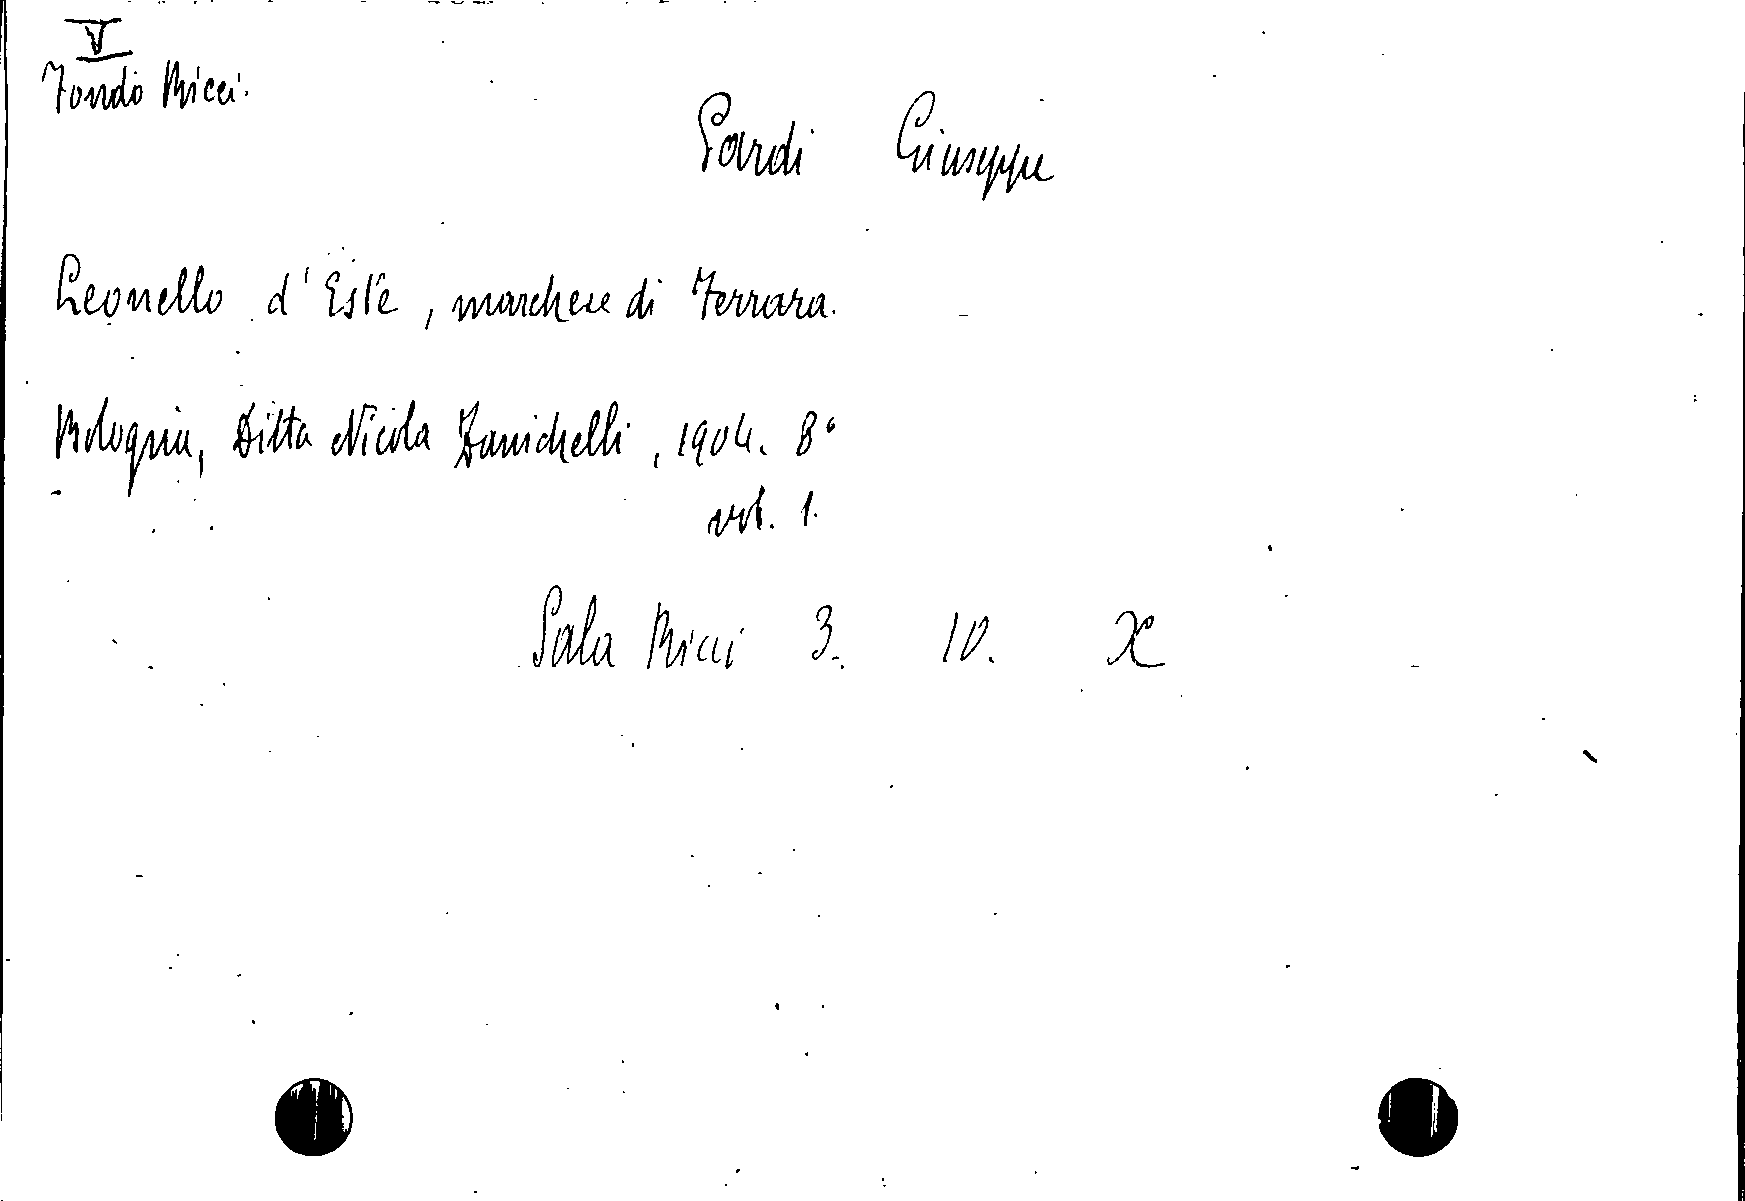 V
Fondo Ricci.
Pardi Giuseppe
Leonello d'Este, marchese di Ferrara.
Bologna, Ditta Nicola Zanichelli, 1904. 8°
vol. 1.
Sala Ricci 3. 10. X